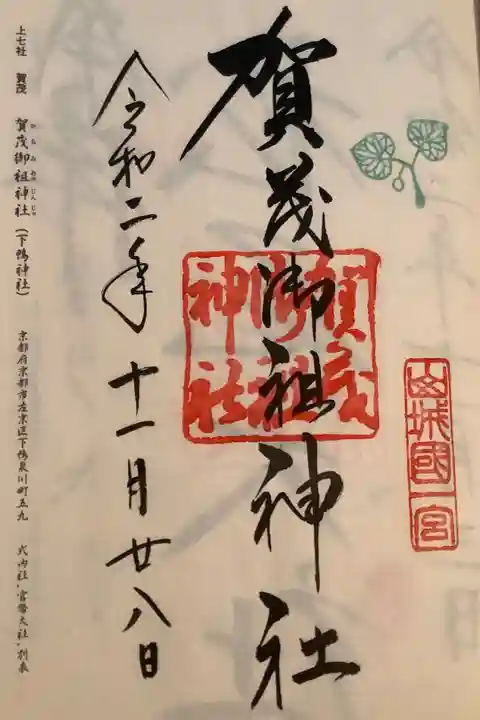 山城國一宮
賀茂御祖神社
賀茂御祖神社
令和二年十一月廿八日
上七社 賀茂 賀茂御祖神社(下鴨神社) 京都府京都市左京区下鴨泉川町五九 式内社・官幣大社・別表
かもみおやじんじゃ